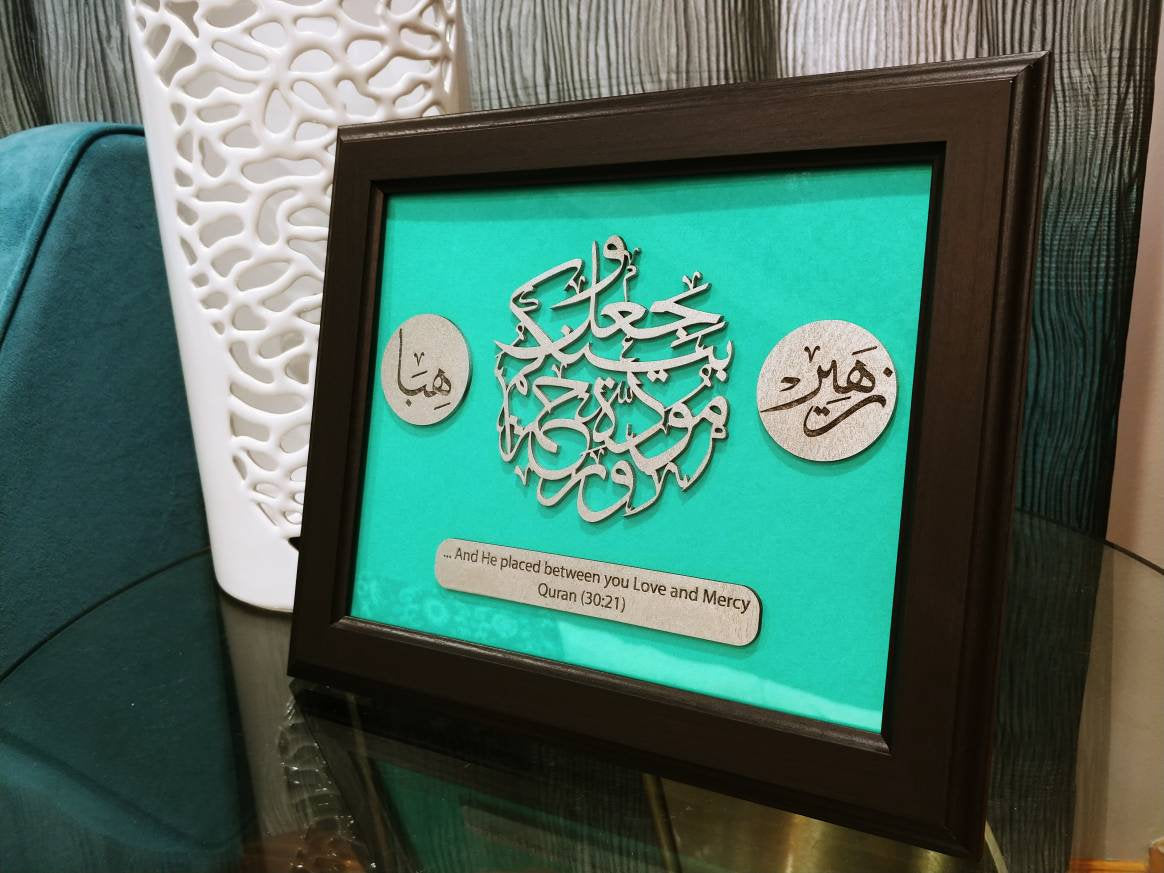 وجعل
بينكم
مودة
ورحمة
هِبَا
زهير
... And He placed between you Love and Mercy
Quran (30:21)